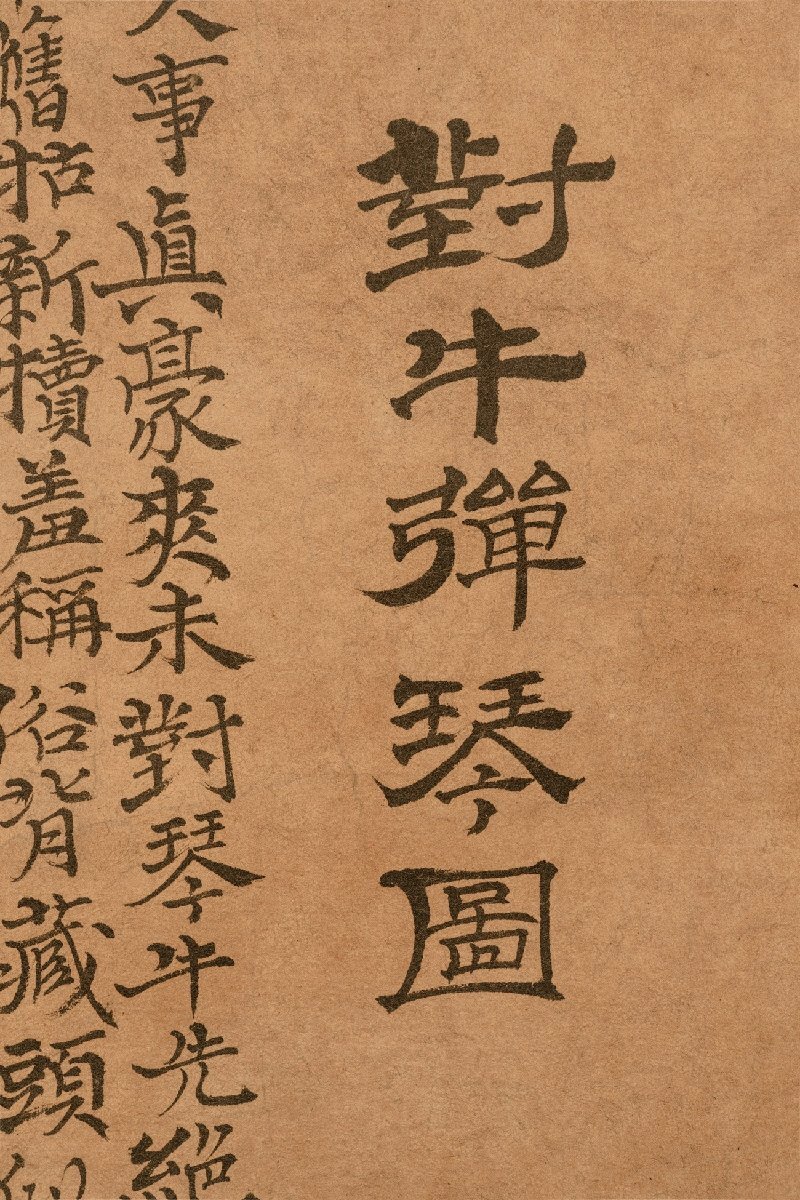 對牛彈琴圖
事眞豪爽未對琴牛先絕
舊牯新犢羞稱俗背藏頭